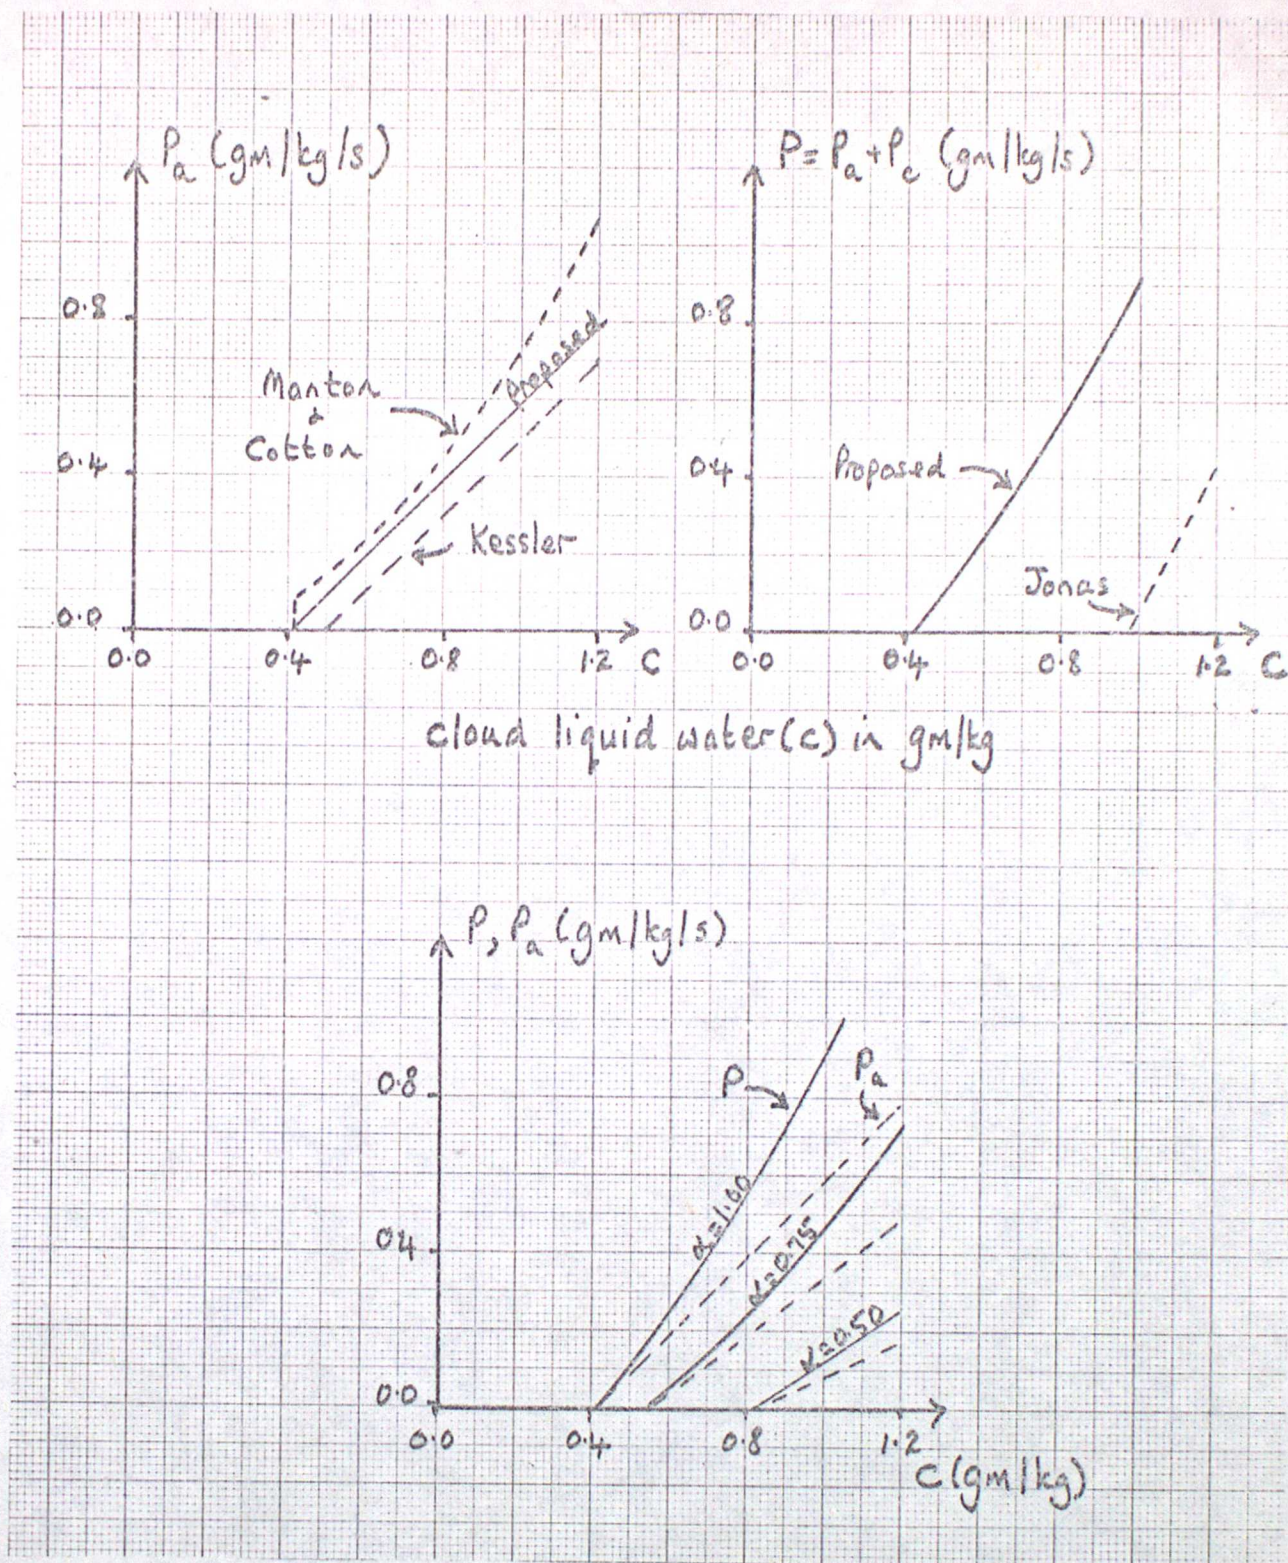 Pa (gm/kg/s)
0.8
0.4
0.0
Manton
&
Cotton
Proposed
Kessler
0.0 0.4 0.8 1.2 C
P=Pa+Pc (gm/kg/s)
0.8
0.4
0.0
Proposed
Jonas
0.0 0.4 0.8 1.2 C
cloud liquid water(c) in gm/kg
P, Pa (gm/kg/s)
0.8
0.4
0.0
P
Pa
α=1.00
α=0.75
α=0.50
0.0 0.4 0.8 1.2
C(gm/kg)